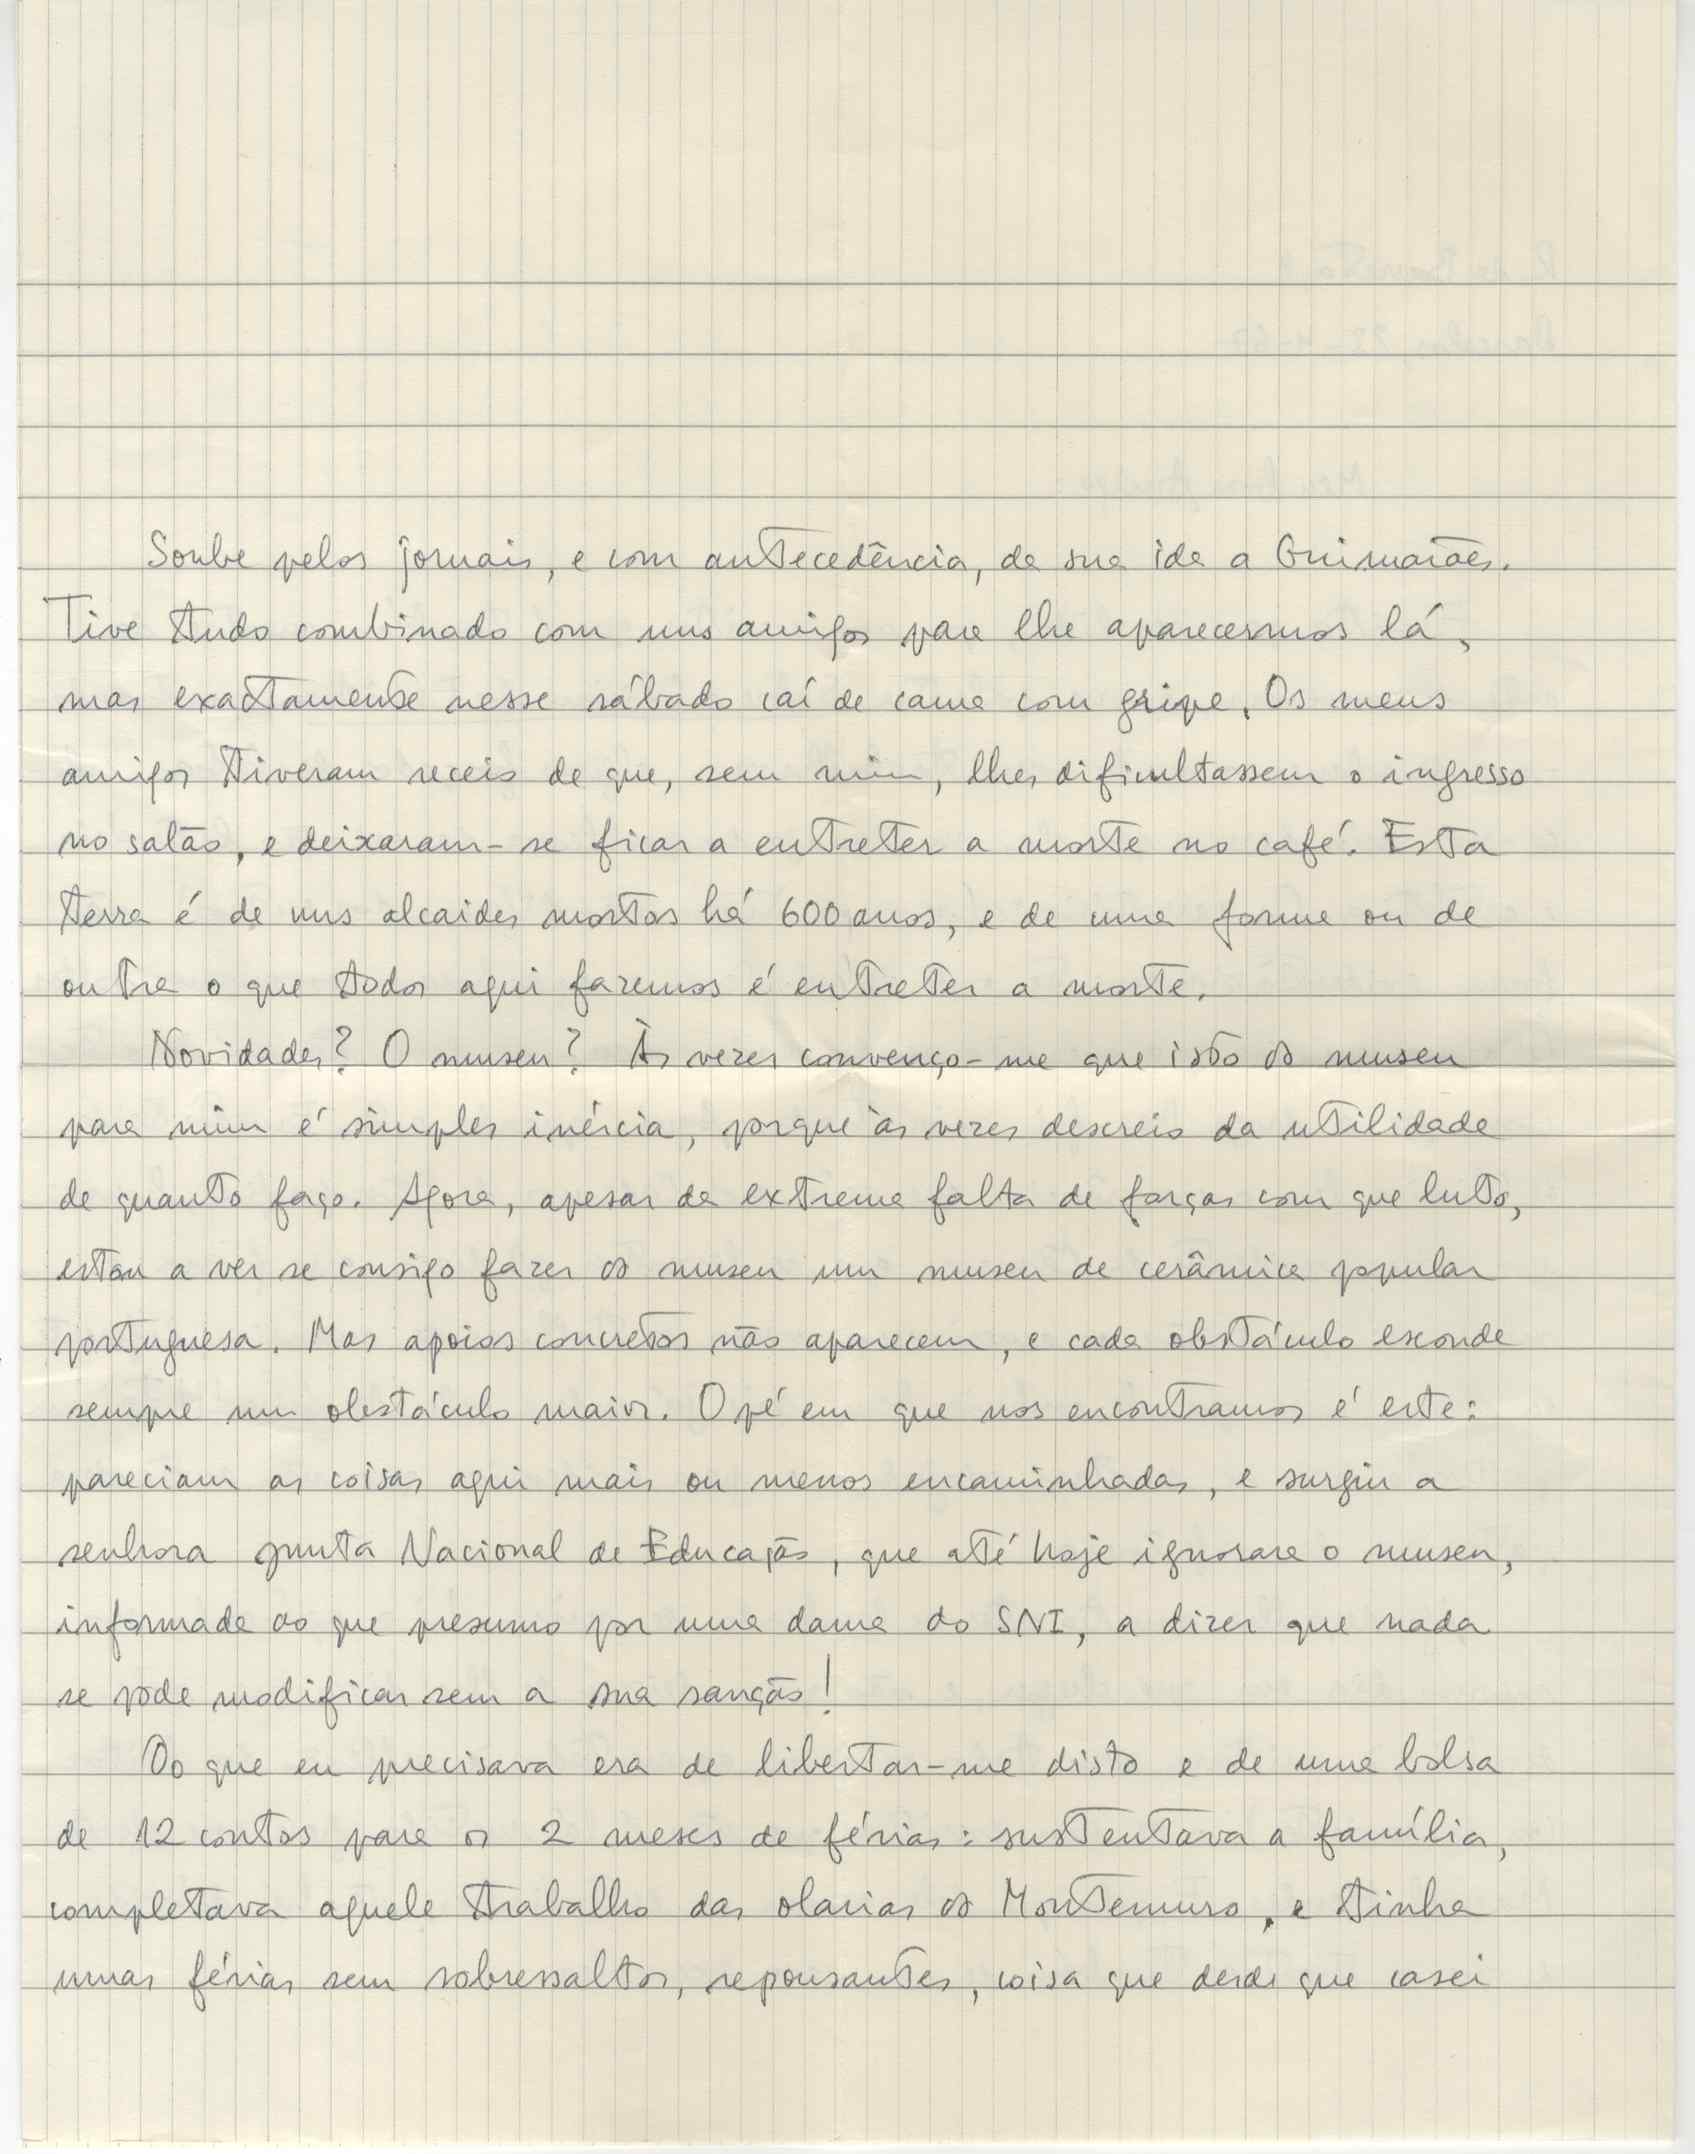 Soube pelos jornais, e com antecedência, da sua ida a Guimarães.
Tive tudo combinado com uns amigos para lhe aparecermos lá,
mas exactamente nesse sábado caí de cama com gripe. Os meus
amigos tiveram receio de que, sem mim, lhes dificultassem o ingresso
no salão, e deixaram-se ficar a entreter a morte no café. Esta
terra é de uns alcaides mortos há 600 anos, e de uma forma ou de
outra o que todos aqui fazemos é entreter a morte.
Novidades? O museu? Às vezes convenço-me que isto do museu
para mim é simples inércia, porque às vezes descreio da utilidade
de quanto faço. Agora, apesar da extrema falta de forças com que luto,
estou a ver se consigo fazer do museu um museu de cerâmica popular
portuguesa. Mas apoios concretos não aparecem, e cada obstáculo esconde
sempre um obstáculo maior. O pé em que nos encontramos é este:
pareciam as coisas aqui mais ou menos encaminhadas, e surgiu a
senhora Junta Nacional de Educação, que até hoje ignorara o museu,
informada ao que presumo por uma dama do SNI, a dizer que nada
se pode modificar sem a sua sanção!
Do que eu precisava era de libertar-me disto e de uma bolsa
de 12 contos para os 2 meses de férias: sustentava a família,
completava aquele trabalho das olarias do Montemuro, e tinha
umas férias sem sobressaltos, repousantes, coisa que desde que casei